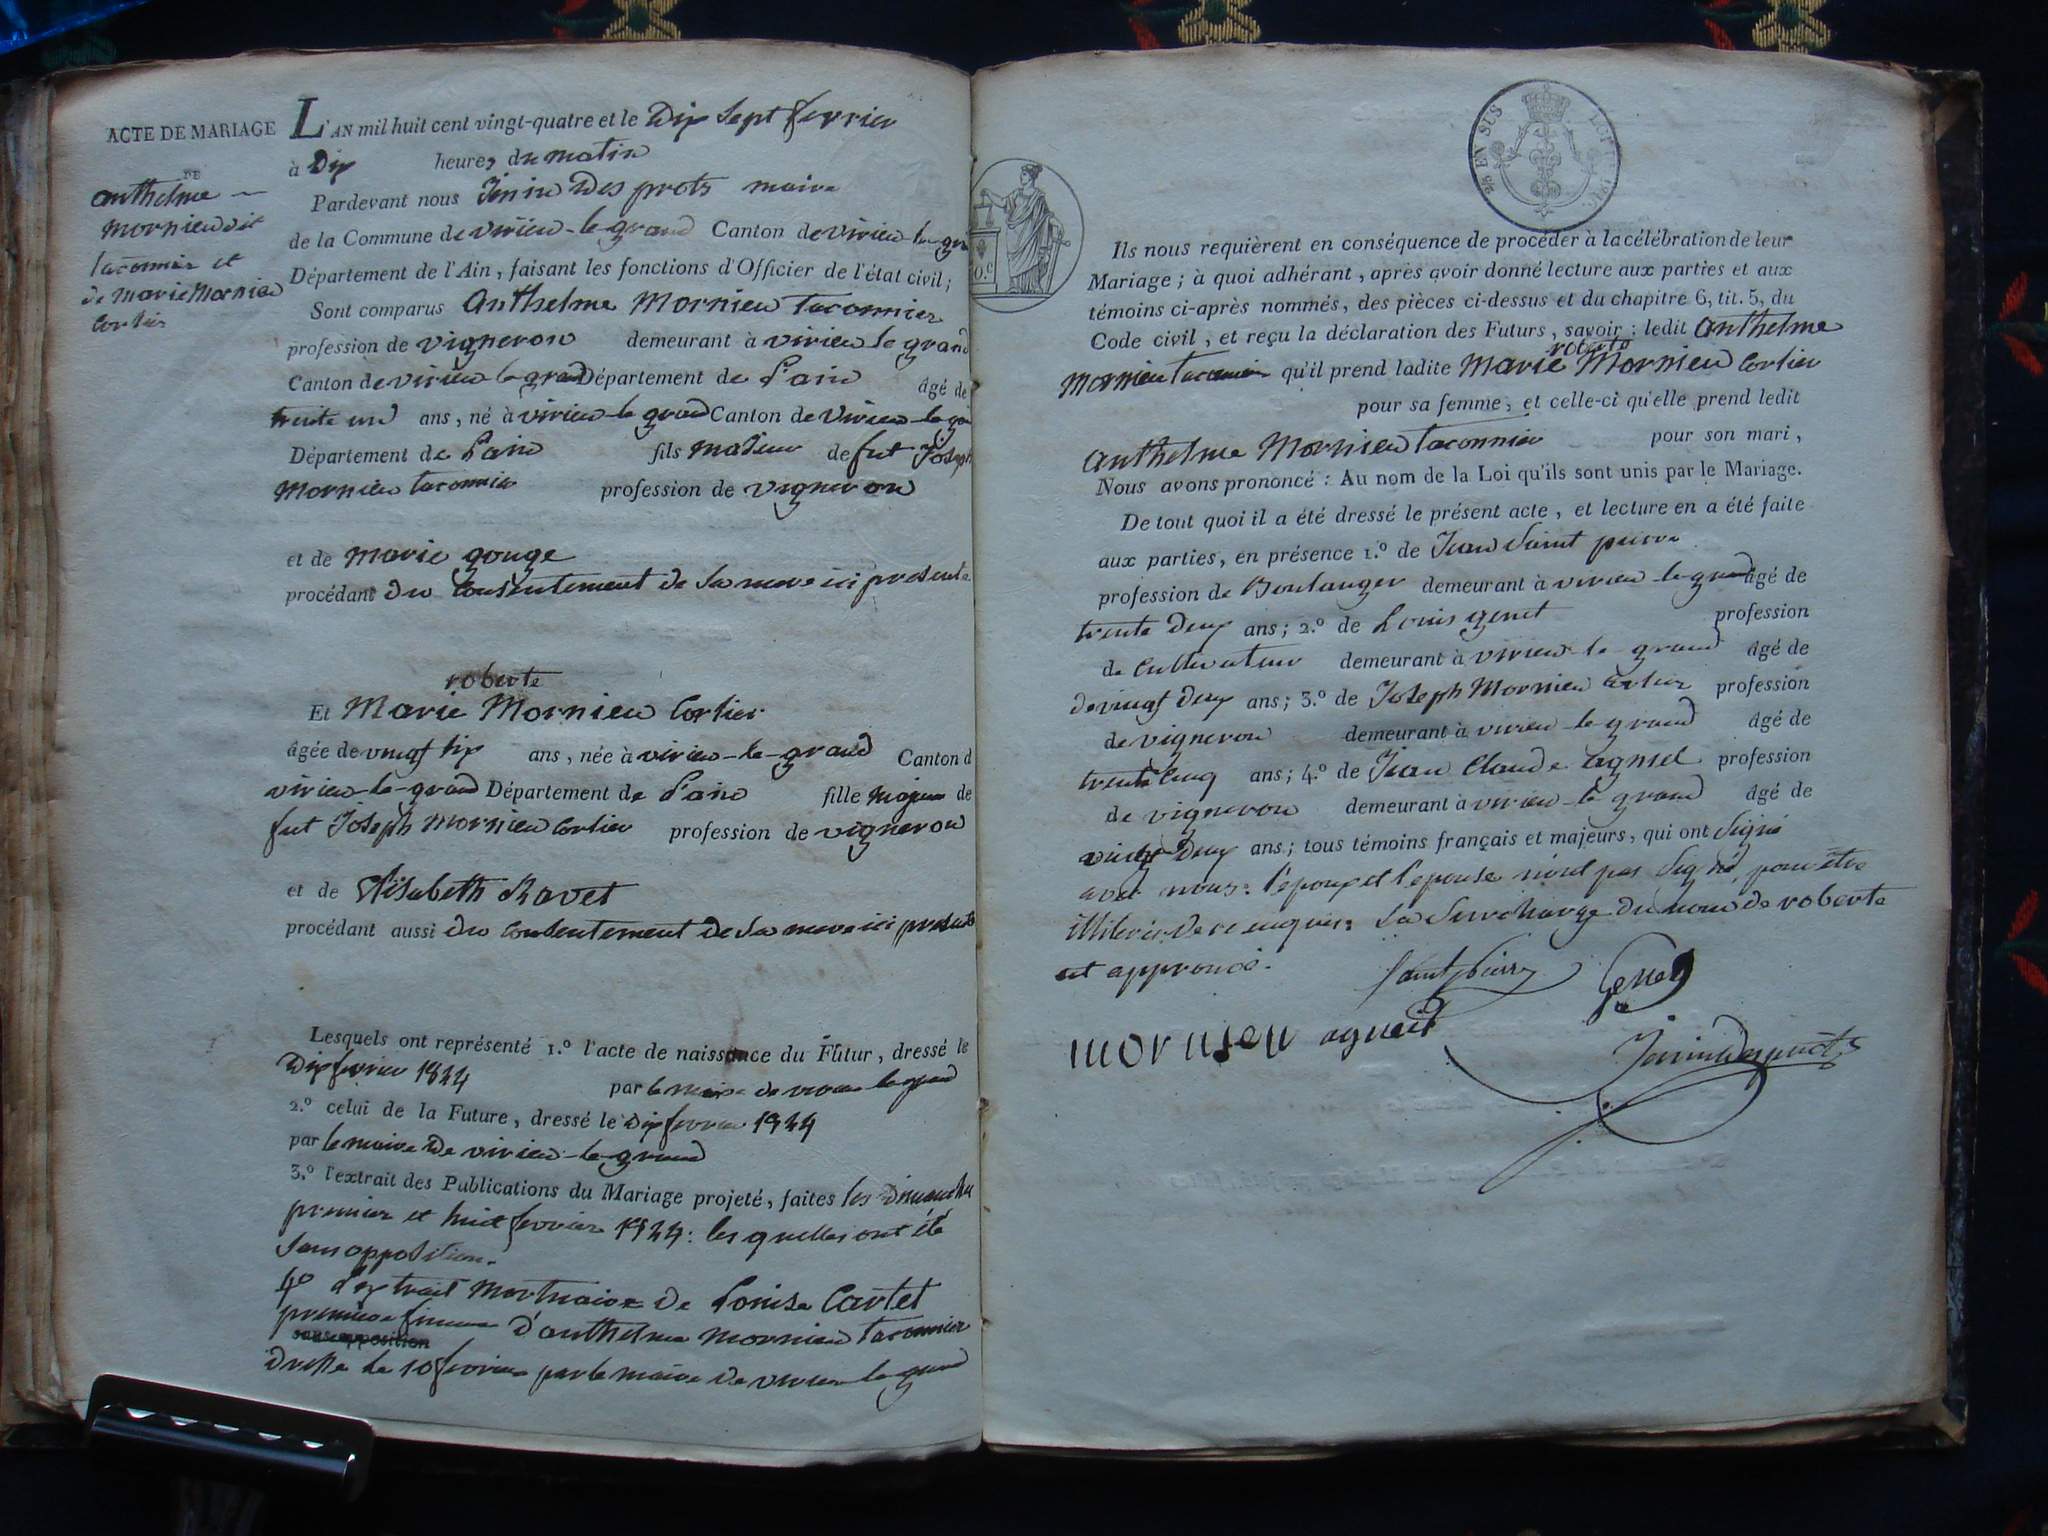 ACTE DE MARIAGE
DE
anthelme
mornieu dit
taconnier et
de marie Mornieu
Cortier
L'AN mil huit cent vingt-quatre et le Dix Sept fevrier
à Dix heures du matin
Pardevant nous Jenin Des prots maire
de la Commune de virieu-le-grand Canton de virieu le gra
Département de l'Ain, faisant les fonctions d'Officier de l'état civil;
Sont comparus Anthelme Mornieu Taconnier
profession de vigneron demeurant à virieu le grand
Canton de virieu-le grand Département de L'ain âgé de
trente un ans, né à virieu-le grand Canton de virieu-le gra
Département de L'ain fils majeur de fut Joseph
Mornieu taconnier profession de vigneron
et de marie gouge
procédant du Consentement de Sa mere ici presente
roberte
Et Marie Mornieu Cortier
âgée de vingt six ans, née à virieu-le-grand Canton d
virieu-le-grand Département de L'ain fille majeure de
fut Joseph Mornieu Cortier profession de vigneron
et de Elisabeth Ravet
procédant aussi du Consentement de Sa mere ici presente
Lesquels ont représenté 1.º l'acte de naissance du Futur, dressé le
Dix fevrier 1824 par le maire de virieu le grand
2.º celui de la Future, dressé le Dix fevrier 1824
par le maire de virieu-le-grand
3.º l'extrait des Publications du Mariage projeté, faites les Dimanches
premier et huit fevrier 1824: les quelles ont été
Sans opposition.
4º L'extrait Mortuaire de Louise Cartet
premiere femme d'anthelme mornieu taconnier
sans opposition
Dressé le 10 fevrier par le maire de virieu le grand
EN SUS
Ils nous requièrent en conséquence de procéder à la célébration de leur
Mariage; à quoi adhérant, après avoir donné lecture aux parties et aux
témoins ci-après nommés, des pièces ci-dessus et du chapitre 6, tit. 5, du
Code civil, et reçu la déclaration des Futurs, savoir: ledit Anthelme
roberte
Mornieu taconnier qu'il prend ladite Marie Mornieu Cortier
pour sa femme, et celle-ci qu'elle prend ledit
Anthelme Mornieu taconnier pour son mari,
Nous avons prononcé: Au nom de la Loi qu'ils sont unis par le Mariage.
De tout quoi il a été dressé le présent acte, et lecture en a été faite
aux parties, en présence 1.º de Jean Saint pierre
profession de Boulanger demeurant à virieu-le-grand âgé de
trente Deux ans; 2.º de Louis genet profession
de Cultivateur demeurant à virieu-le-grand âgé de
de vingt Deux ans; 3.º de Joseph Mornieu Cortier profession
de vigneron demeurant à virieu-le-grand âgé de
trente Cinq ans; 4.º de Jean Claude agniel profession
de vigneron demeurant à virieu-le grand âgé de
vingt Deux ans; tous témoins français et majeurs, qui ont Signé
avec nous: L'epoux et L'epouse n'ont pas Signé pour être
illiterés de ce enquis: La Surcharge du nom de roberte
est approuvé.
Saint pierre Genet
mornieu agneit
Jenindesprots